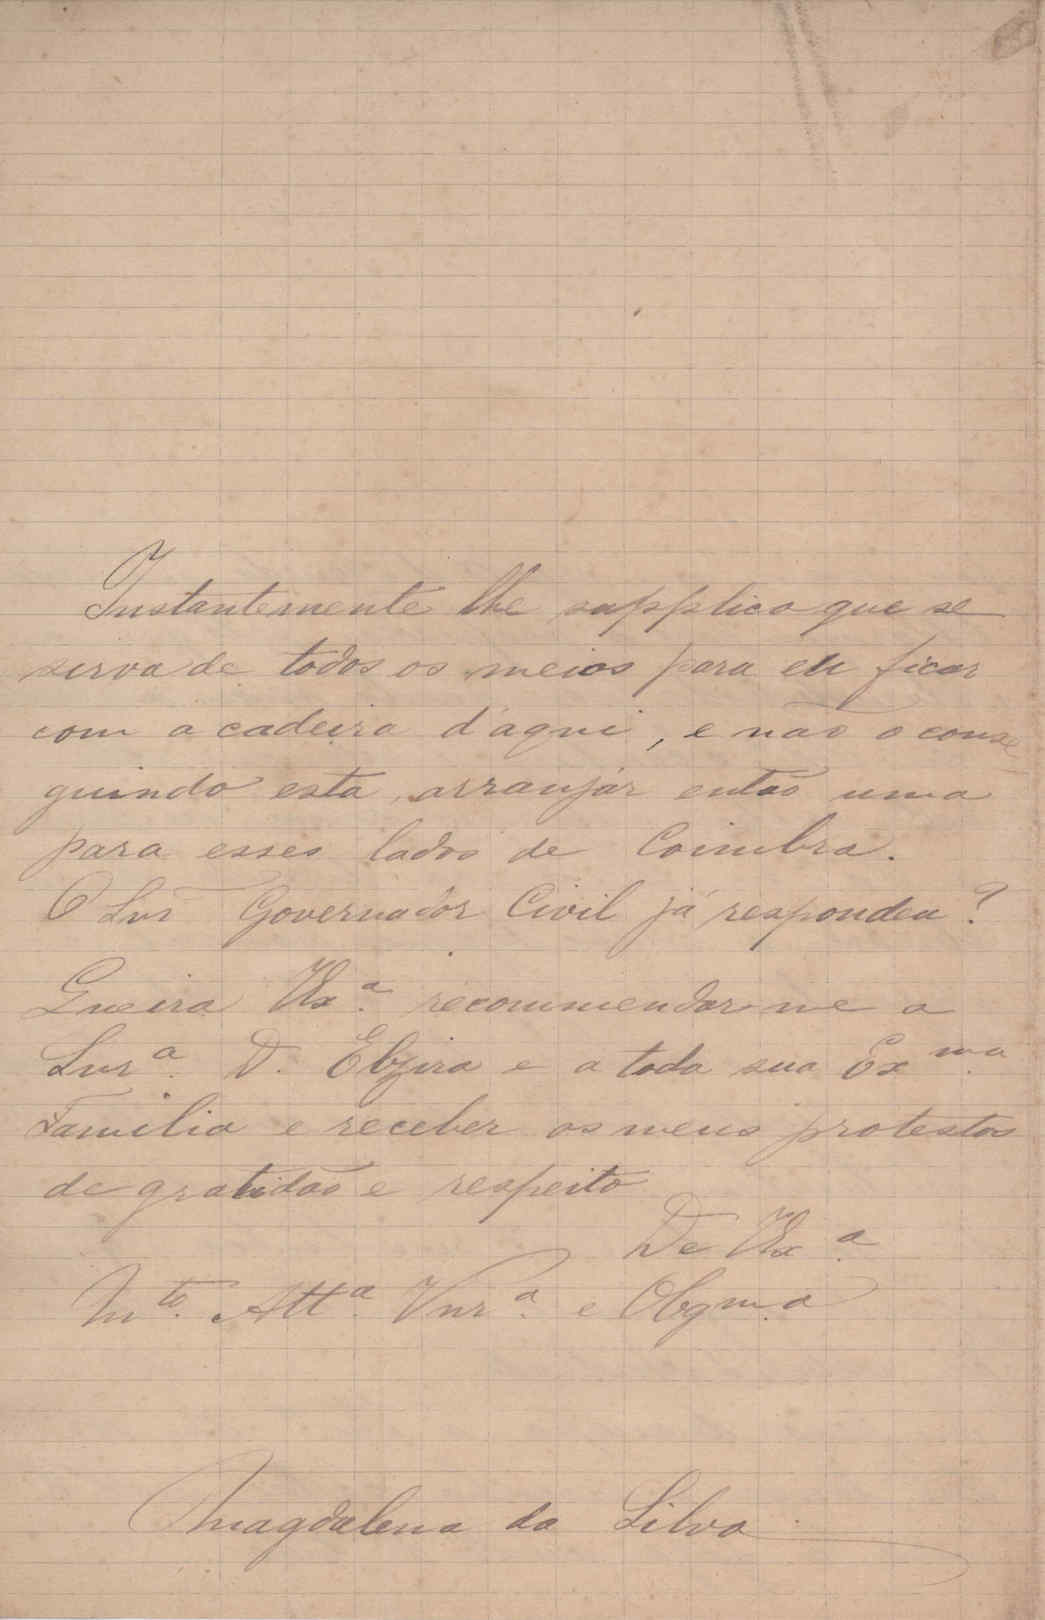 Instantemente lhe supplico que se
sirva de todos os meios para eu ficar
com a cadeira d'aqui, e não o conse
guindo esta, arranjar então uma
para esses lados de Coimbra.
O Snr Governador Civil já respondeu?
Queira VEx.ª recommendar-me a
Snr.ª D. Elzira e a toda sua Ex.ma
Familia e receber os meus protestos
de gratidão e respeito
De VEx.ª
M.to Att.ª Vnr.ª e Obgm.a
Magdalena da Silva